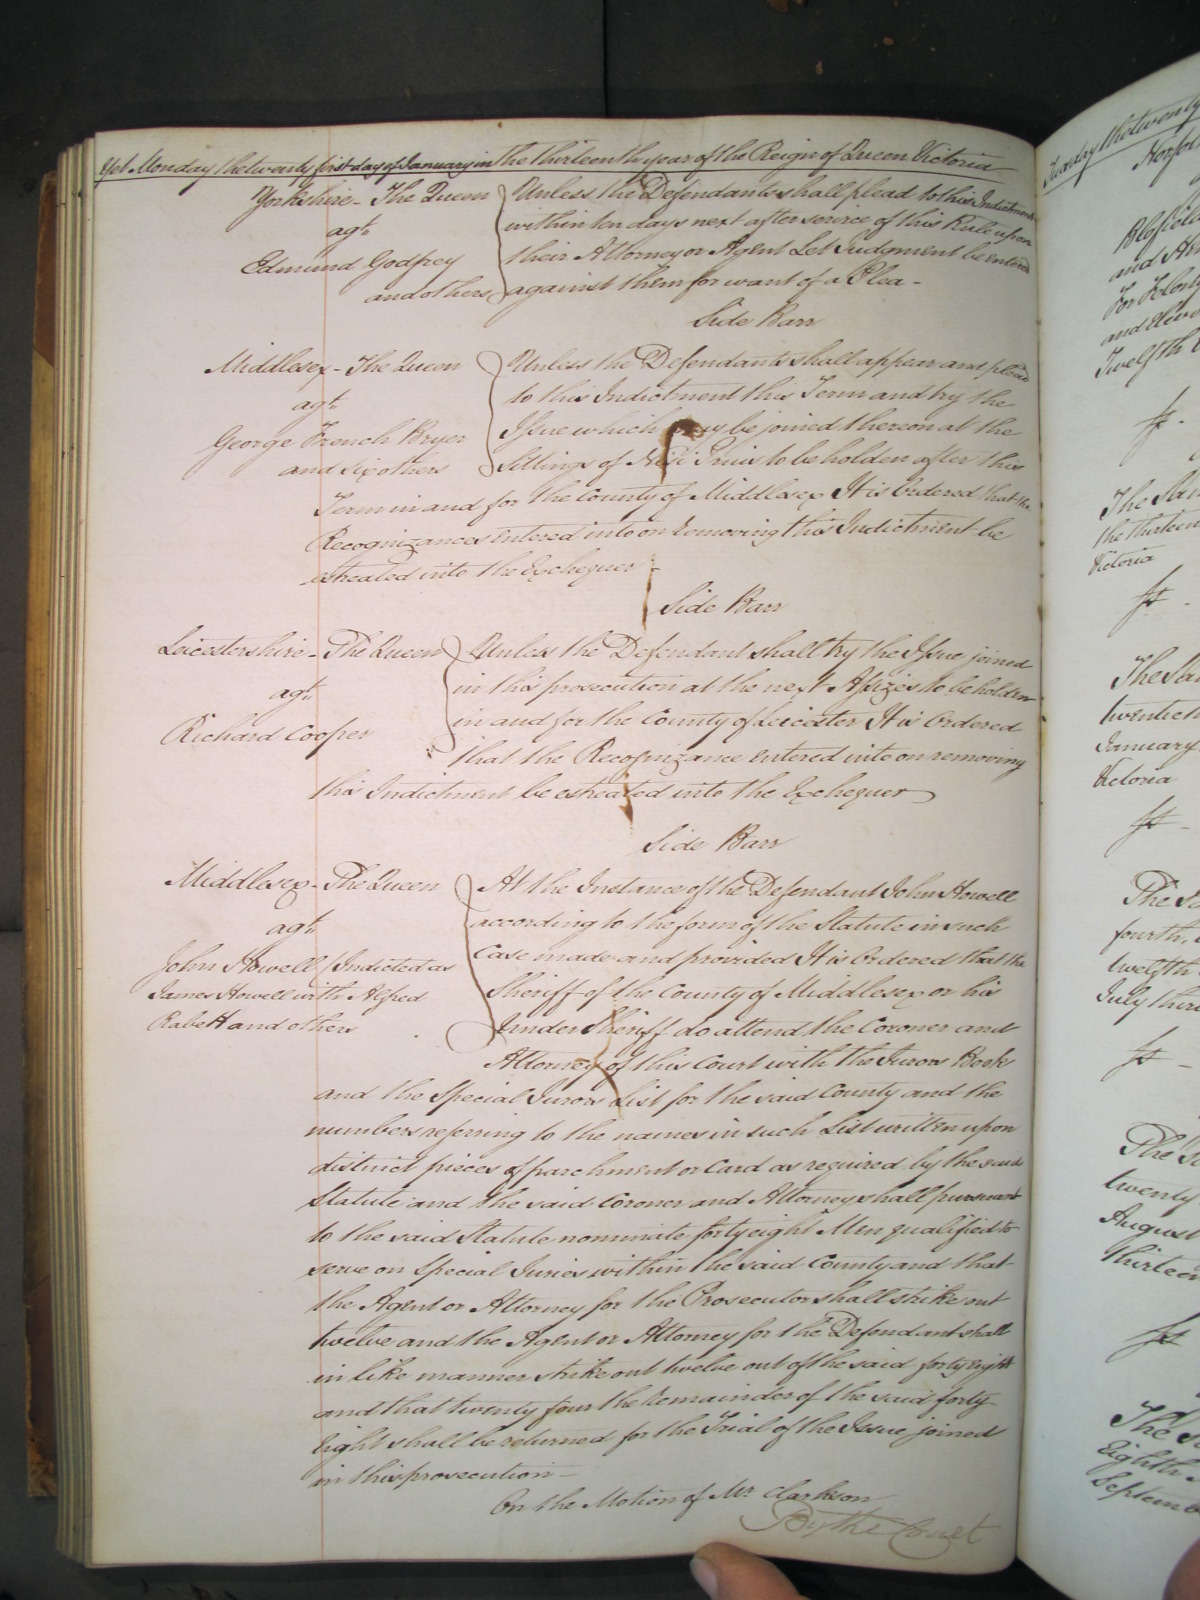 Yet Monday the twenty first day of January in the thirteenth year of the Reign of Queen Victoria
Yorkshire - The Queen
agt.
Edmund Godfrey
and others
Unless the Defendants shall plead to this Indictment
within ten days next after service of this Rule upon
their Attorney or Agent Let Judgment be entered
against them for want of a Plea -
Side Barr
Middlesex - The Queen
agt.
George French Bryer
and six others
Unless the Defendants shall appear and plead
to this Indictment this Term and try the
Issue which may be joined thereon at the
Sittings of Nisi Prius to be holden after this
Term in and for the County of Middlesex It is Ordered that the
Recognizances entered into on removing this Indictment be
estreated into the Exchequer -
Side Barr
Leicestershire - The Queen
agt.
Richard Cooper
Unless the Defendant shall try the Issue joined
in this prosecution at the next Assizes to be holden
in and for the County of Leicester It is Ordered
that the Recognizance entered into on removing
this Indictment be estreated into the Exchequer
Side Barr
Middlesex - The Queen
agt.
John Howell Indicted as
James Howell with Alfred
Rabett and others
At the Instance of the Defendant John Howell
according to the form of the Statute in such
Case made and provided It is Ordered that the
Sheriff of the County of Middlesex or his
Under Sheriff do attend the Coroner and
Attorney of this Court with the Jurors Book
and the Special Jurors List for the said County and the
numbers referring to the names in such List written upon
distinct pieces of parchment or Card as required by the said
Statute and the said Coroner and Attorney shall pursuant
to the said Statute nominate forty eight Men qualified to
serve on Special Juries within the said County and that
the Agent or Attorney for the Prosecutor shall strike out
twelve and the Agent or Attorney for the Defendant shall
in like manner strike out twelve out of the said forty eight
and that twenty four the remainder of the said forty
Eight shall be returned for the Trial of the Issue joined
in this prosecution -
On the Motion of Mr. Clarkson
By the Court
Tuesday the twenty
Blofield
and
For Felony
and
Twelfth
The
the thirteen
Victoria
The
twentieth
January
Victoria
The
fourth,
twelfth
July
The
twenty
August
thirteen
The
Eighth
Septem